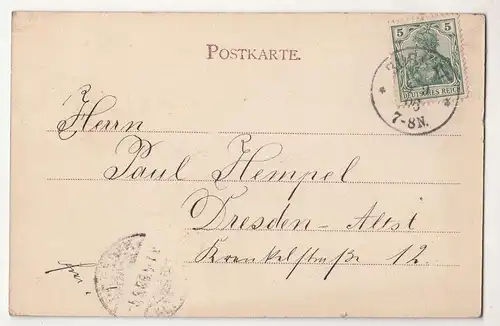 POSTKARTE.
5 5
DEUTSCHES REICH
7-8N.
Herrn
Paul Hempel
Dresden-Altst
12